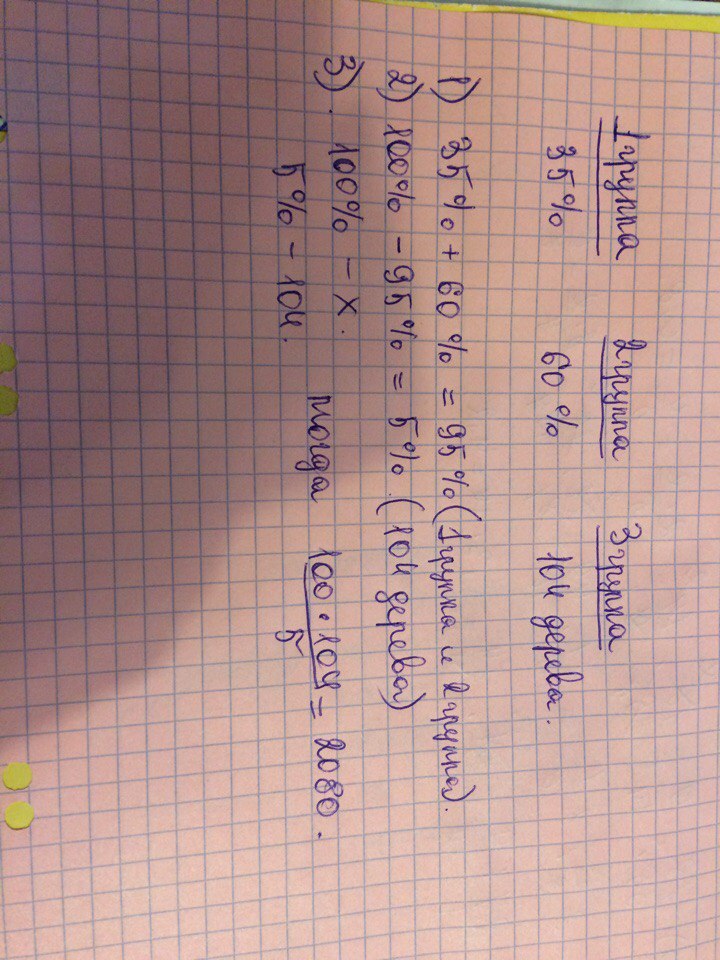 1 группа 2 группа 3 группа
35% 60% 104 дерева.
1) 35% + 60% = 95% (1 группа и 2 группа).
2) 100% - 95% = 5%. (104 дерева)
3). 100% - x.
5% - 104.
тогда 100 · 104 / 5 = 2080.